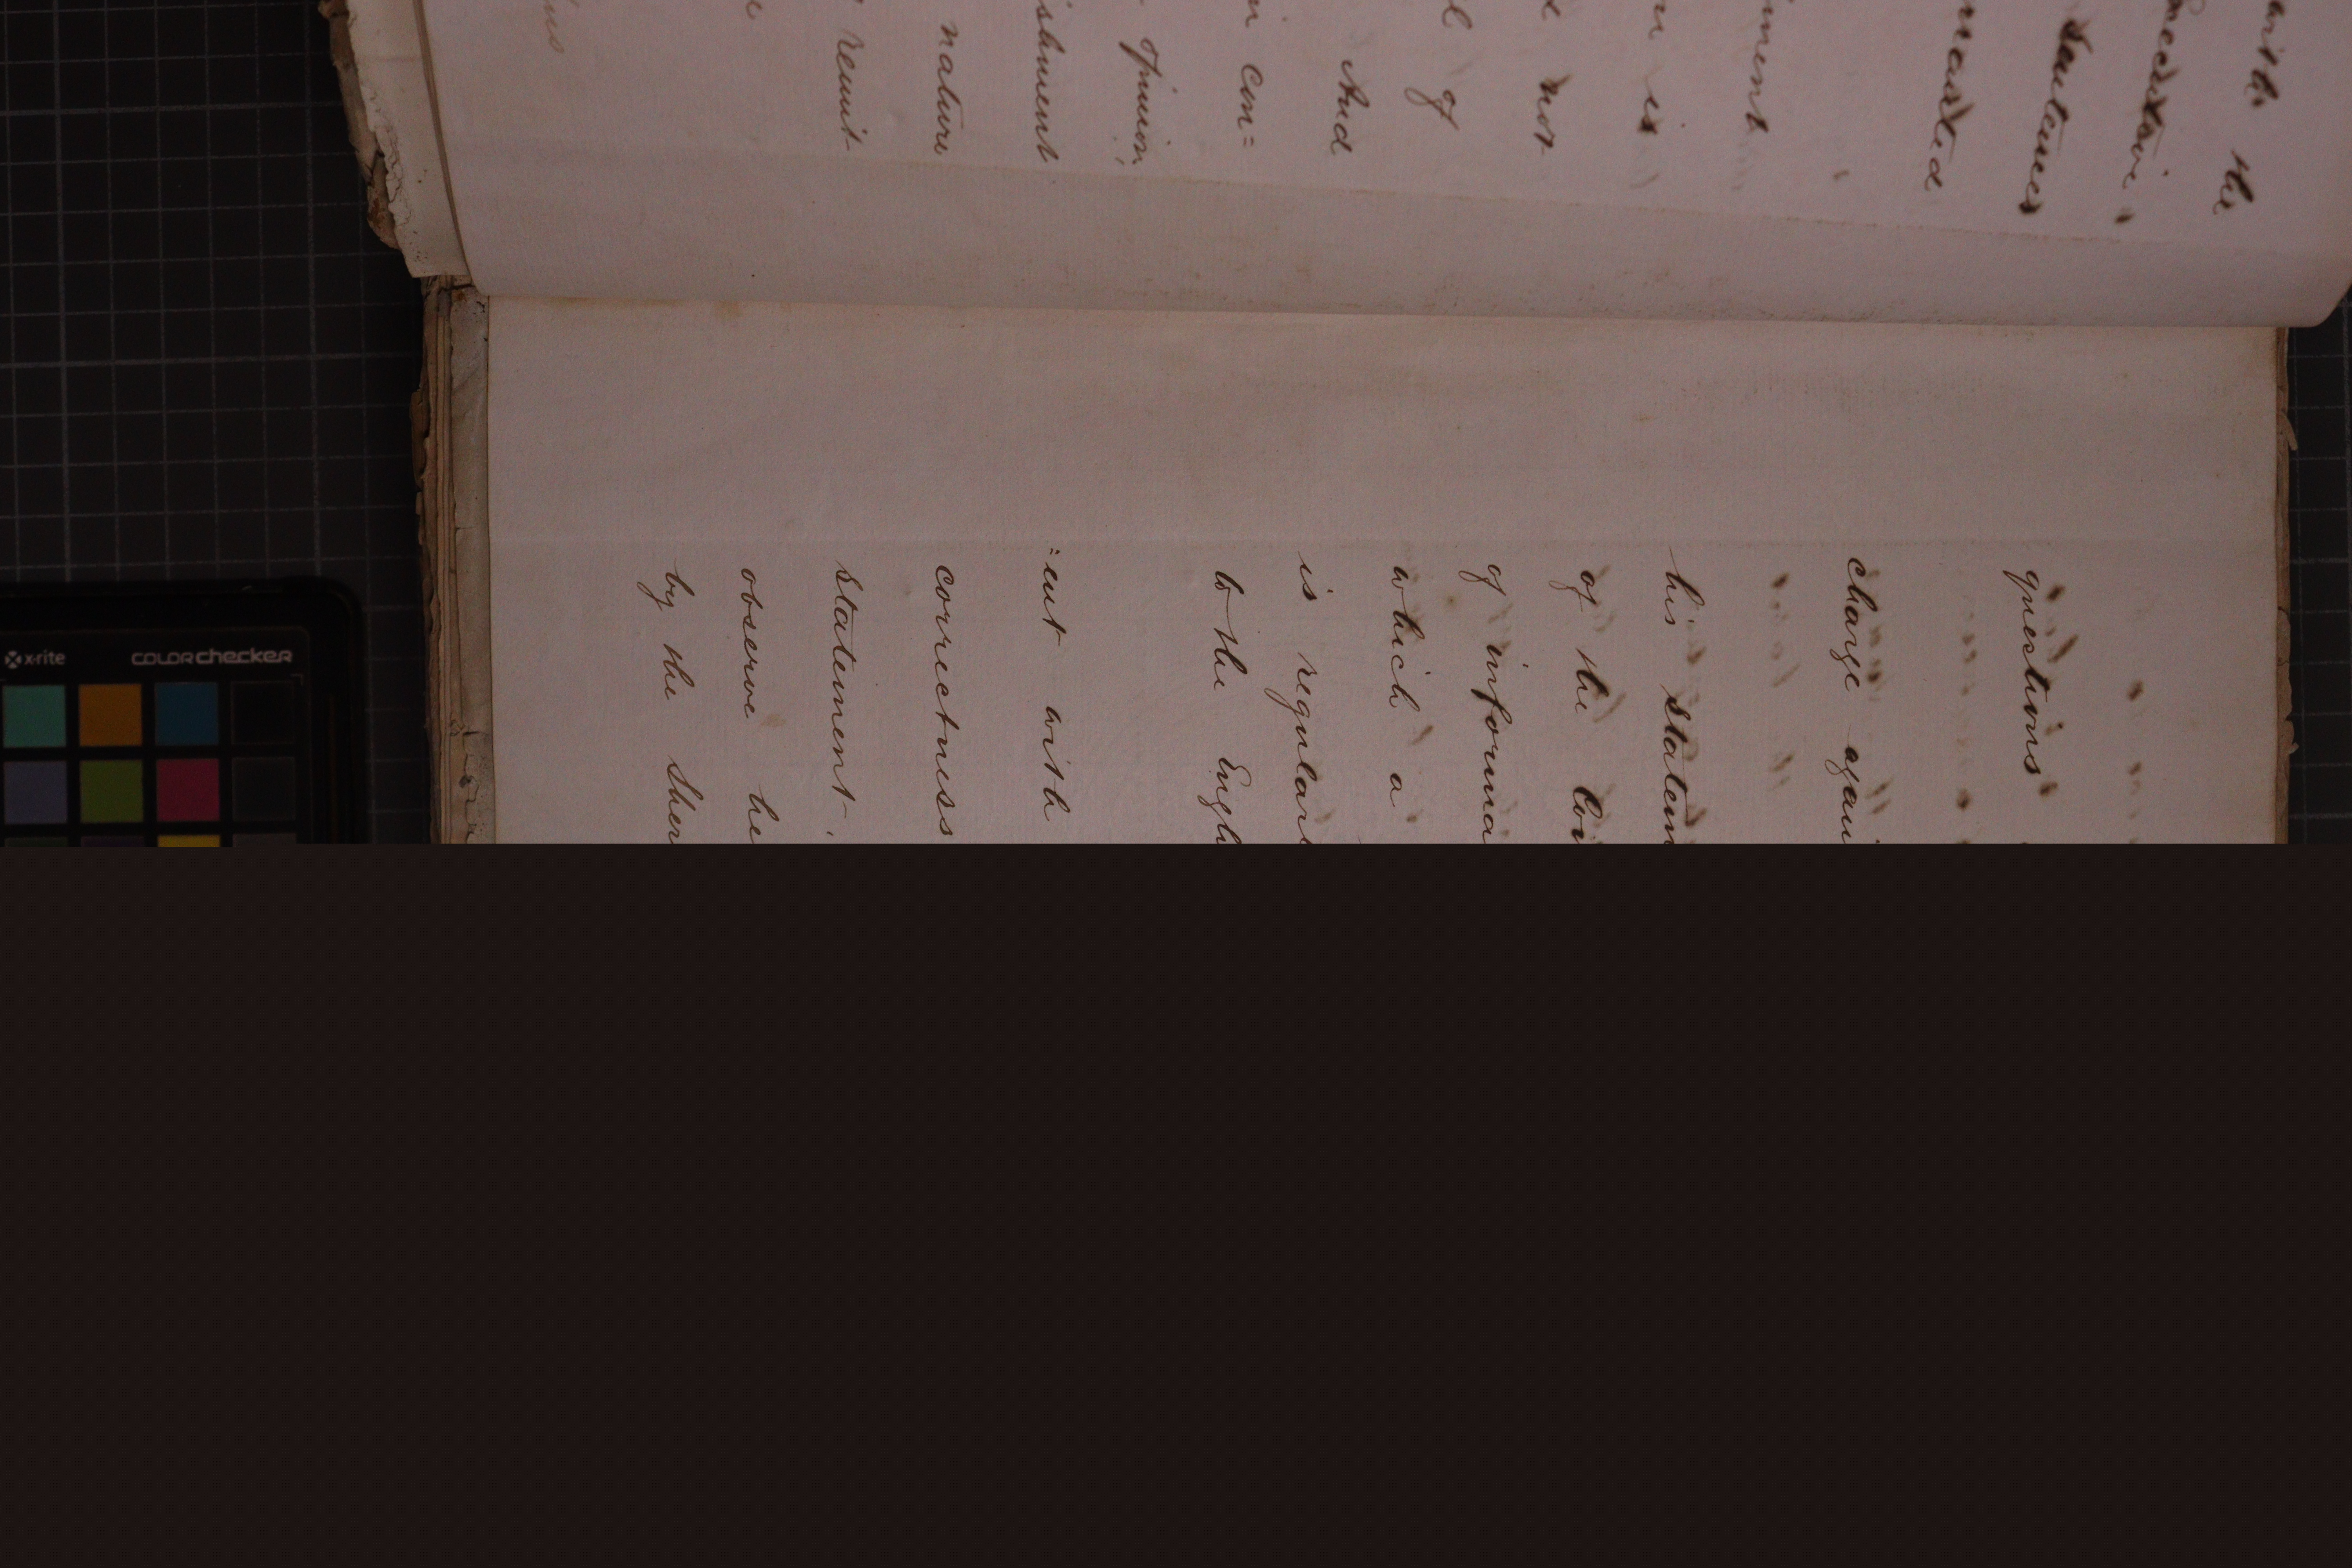 the
Sentences
ment
is
not
of
And
con=
opinion,
ishment
nature
remit
questions
charge agai
his statem
of the
of informa
which a
is regular
to the Engl
=ent with
correctness
statement.
observe he
by the Sher
x-rite colorchecker